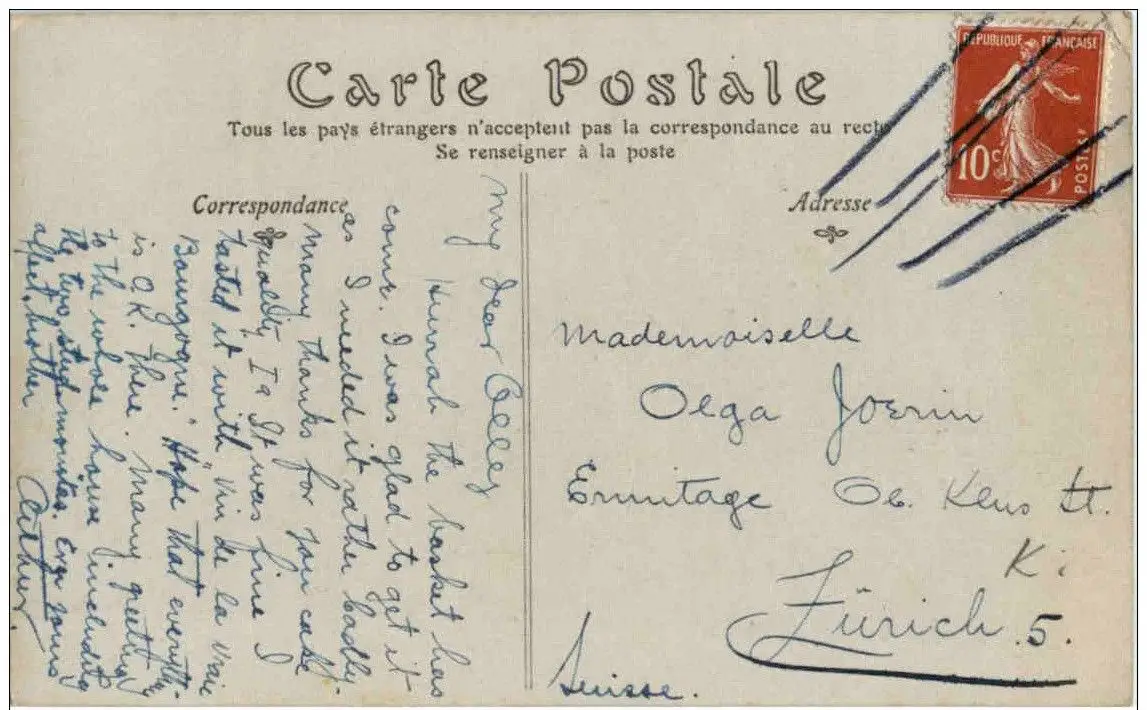 Carte Postale
Tous les pays étrangers n'acceptent pas la correspondance au recto
Se renseigner à la poste
REPUBLIQUE FRANÇAISE
10c
POSTES
Correspondance
My dear Olley
Hurrah the basket has
come. I was glad to get it
as I needed it rather badly.
many thanks for you cake
quality Ia It was fine I
tasted it with "vin de la vraie
Bourgogne." Hope that everyth-
is O.K. there. many greetings
to the whole house including
the two. Ever yours
affect. brother
Arthur.
Adresse
Mademoiselle
Olga Joerin
Ermitage Ob. Klus St.
Zürich 5.
Suisse.